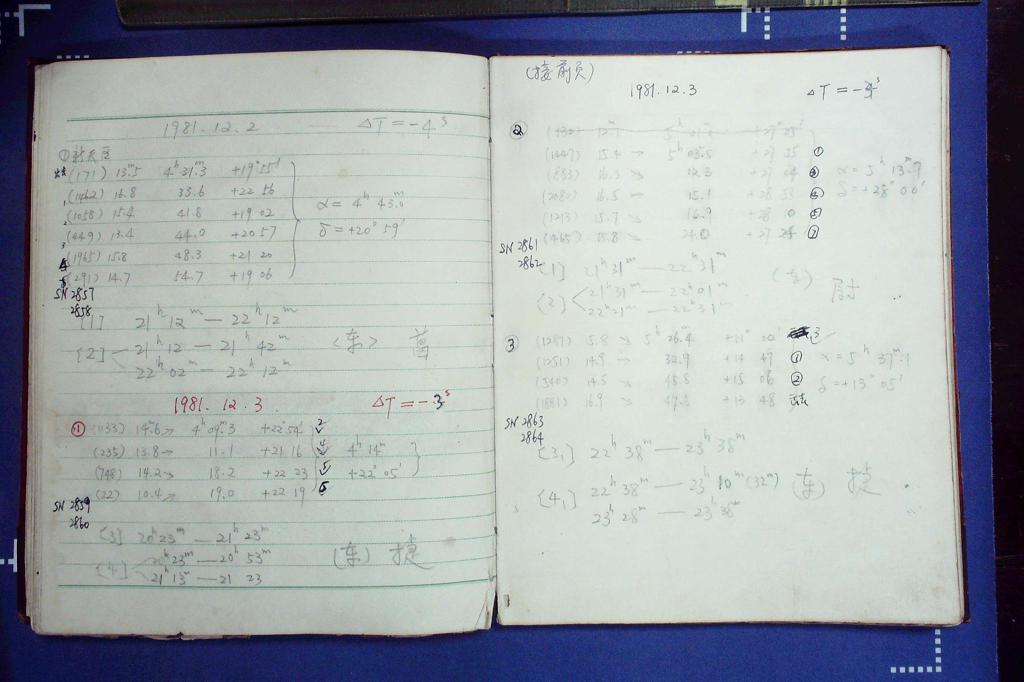 1981.12.2 ΔT=-4ˢ
(171) 13.ᵐ5 4ʰ31.ᵐ3 +19°55′
(1462) 16.8 33.6 +22 56
(1058) 15.4 41.8 +19 02
(449) 13.4 44.0 +20 57
(1965) 15.8 48.3 +21 20
(291) 14.7 54.7 +19 06
α= 4ʰ 43.ᵐ0
δ=+20° 59′
SN 2857
2858
[1] 21ʰ12ᵐ—22ʰ12ᵐ
[2] 21ʰ12—21ʰ42ᵐ
22ʰ02—22ʰ12ᵐ
<车>
1981.12.3. ΔT=-3ˢ
① (1133) 14.ᵐ6→ 4ʰ09.ᵐ3 +22°54′ 2
(235) 13.8→ 11.1 +21 16 4
(748) 14.2→ 18.2 +22 23 5
(22) 10.4→ 19.0 +22 19 6
4ʰ14ᵐ
+22°05′
SN 2859
2860
[3] 20ʰ23ᵐ—21ʰ23ᵐ
[4] 20ʰ23ᵐ—20ʰ53ᵐ
21ʰ13ᵐ—21 23
(车) 捷
(接前页)
1981.12.3 ΔT=-3ˢ
②
15.4→ 5ʰ03.5 +27 35 ①
15.1
(1213) 15.7→ 16.9 +28
15.8→ +27 ⑦
α=5ʰ13ᵐ.9
δ=+28°00′
SN 2861
2862
[1] 21ʰ31ᵐ—22ʰ31ᵐ
[2] 21ʰ31ᵐ—22ʰ01ᵐ
22ʰ21ᵐ—22ʰ31ᵐ
(车) 尉
③ (1281) 15.8→ 5ʰ26.ᵐ4 +11° 02′ 3
(1251) 14.9→ 32.9 +14 47 ①
(540) 14.5→ 45.8 +15 06 ②
(1881) 16.9→ +13 48
α=5ʰ37ᵐ.1
δ=+13°05′
SN 2863
2864
[3₁] 22ʰ38ᵐ—23ʰ38ᵐ
[4₁] 22ʰ38ᵐ—23ʰ10ᵐ(32ᵐ)
23ʰ28ᵐ—23ʰ38ᵐ
(车) 捷